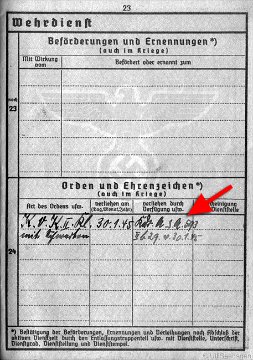 23
Wehrdienst
Beförderungen und Ernennungen*)
(auch im Kriege)
Mit Wirkung vom
Befördert oder ernannt zum
noch 23
Orden und Ehrenzeichen*)
(auch im Kriege)
Art des Ordens usw.
verliehen am (Tag, Monat, Jahr)
verliehen durch Verfügung usw.
Bescheinigung Dienststelle
K. V. K. II. Kl. 30.1.45
mit Schwertern
24
*) Bestätigung der Beförderungen, Ernennungen und Verleihungen nach Abschluß der
aktiven Dienstzeit durch den Entlassungstruppenteil usw. mit Ort, Datum, Unterschrift,
Dienstgrad, Dienststellung und Dienststempel.